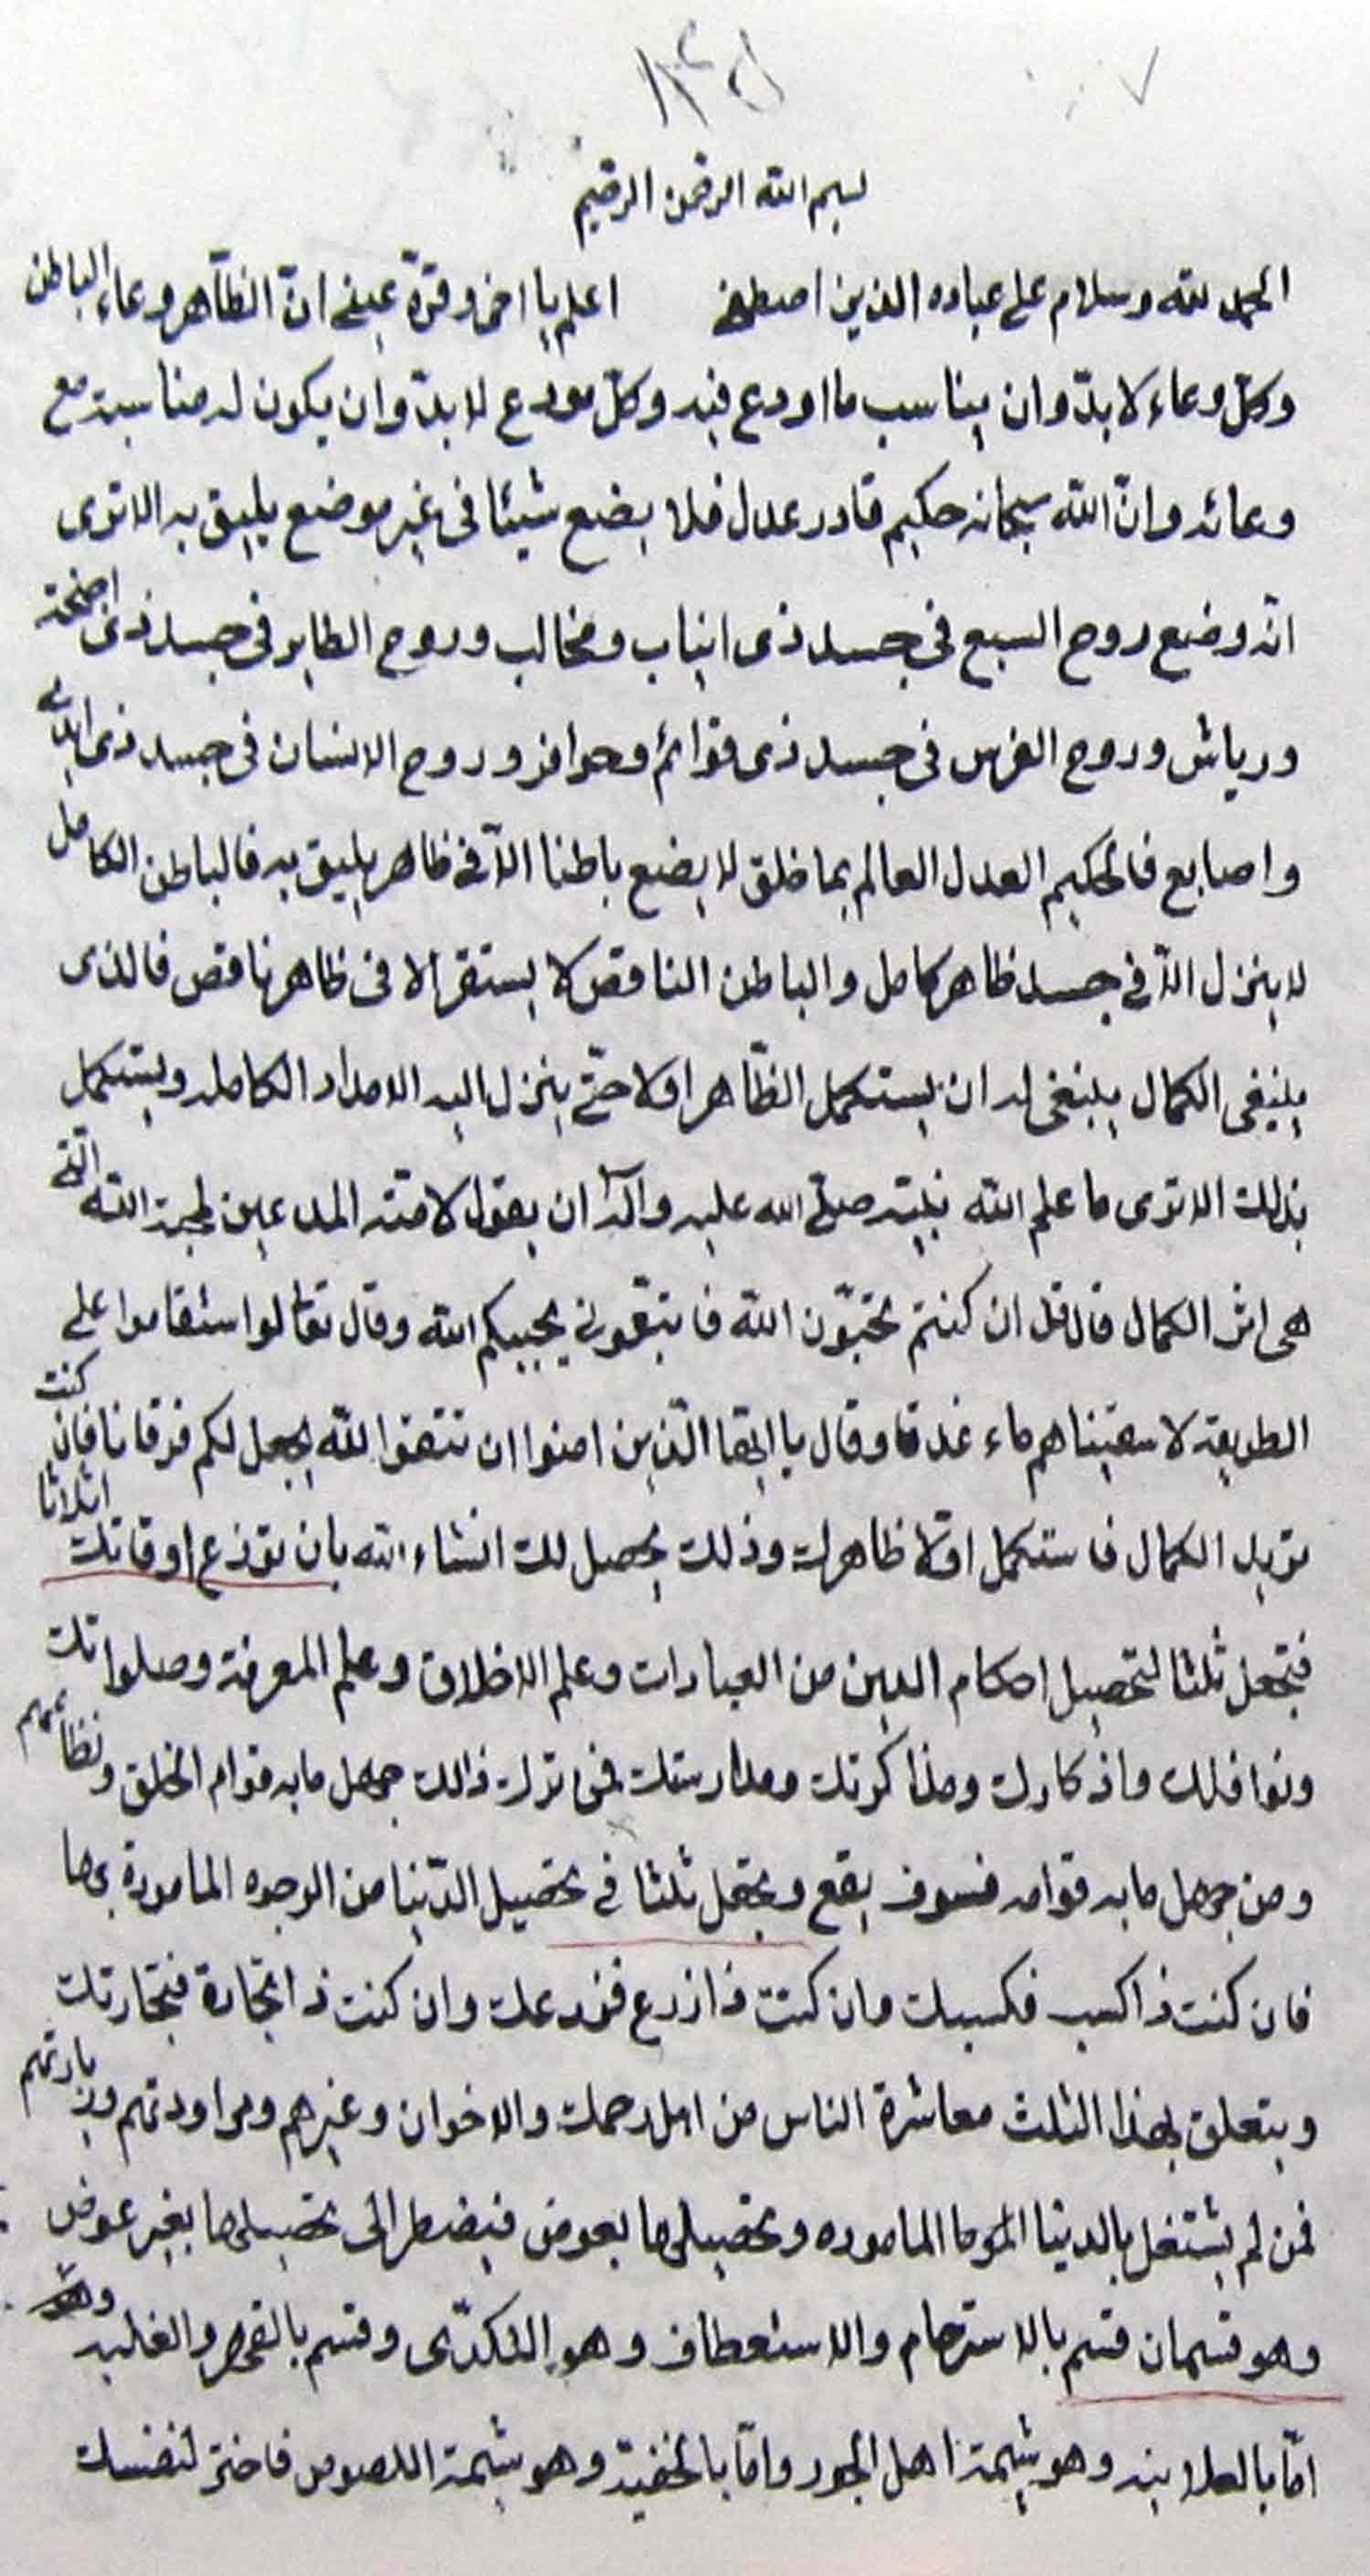 بسم الله الرحمن الرحیم
الحمد لله وسلام علی عباده الذین اصطفی اعلم یا اخی وقرّة عینی انّ الظّاهر وعاء الباطن
وکلّ وعاء لا بدّ وان یناسب ما اودع فیه وکلّ مودع لا بدّ وان یکون له مناسبة مع
وعائه وانّ اللّه سبحانه حکیم قادر عدل فلا یضع شیئا فی غیر موضع یلیق به الا تری
انّه وضع روح السبع فی جسد ذی انیاب ومخالب وروح الطایر فی جسد ذی اجنحة
وریاش وروح الفرس فی جسد ذی قوائم وحوافر وروح الانسان فی جسد ذی
واصابع فالحکیم العدل العالم بما خلق لا یضع باطنا الّا فی ظاهر یلیق به فالباطن الکامل
لا ینزل الّا فی جسد ظاهر کامل والباطن الناقص لا یستقر الا فی ظاهر ناقص فالذی
ینبغی الکمال ینبغی له ان یستکمل الظّاهر اولا حتّی ینزل الیه الامداد الکامله ویستکمل
بذلک الا تری ما علم اللّه نبیّه صلّی الله علیه وآله ان یقول لامّته المدعین لمحبة اللّه الّتی
هی اثر الکمال قال قل ان کنتم تحبّون اللّه فاتبّعونی یحببکم اللّه وقال تعا لو استقاموا علی
الطریقة لاسقیناهم ماء غدقا وقال یا ایّها الّذین امنوا ان تتقوا اللّه یجعل لکم فرقانا فان کنت
ترید الکمال فاستکمل اوّلا ظاهرک وذلک یحصل لک انشاء الله بان توزع اوقاتک اثلاثا
فتجعل ثلثا لتحصیل احکام الدین من العبادات وعلم الاخلاق وعلم المعرفة وصلواتک
ونوافلک واذکارک ومذاکرتک ومدارستک فمن ترک ذالک جهل ما به قوام الخلق ونظامهم
ومن جهل ما به قوامه فسوف یقع وتجعل ثلثا فی تحصیل الدّنیا من الوجوه المامورة بها
فان کنت ذا کسب فکسبک وان کنت ذا زرع فزرعک وان کنت ذا تجارة فتجارتک
ویتعلق بهذا الثلث معاشرة الناس من اهل رحمک والاخوان وغیرهم ومراودتهم وزیارتهم
فمن لم یشتغل بالدنیا الماموره وتحصیلها بعوض فیضطر الی تحصیلها بغیر عوض
وهو قسمان قسم بالاسترحام والاستعطاف وهو التکدّی وقسم بالقهر والغلبه
امّا بالعلانیه وهو شیمة اهل الجور وامّا بالخفیّة وهو شیمة اللصوص فاختر لنفسک